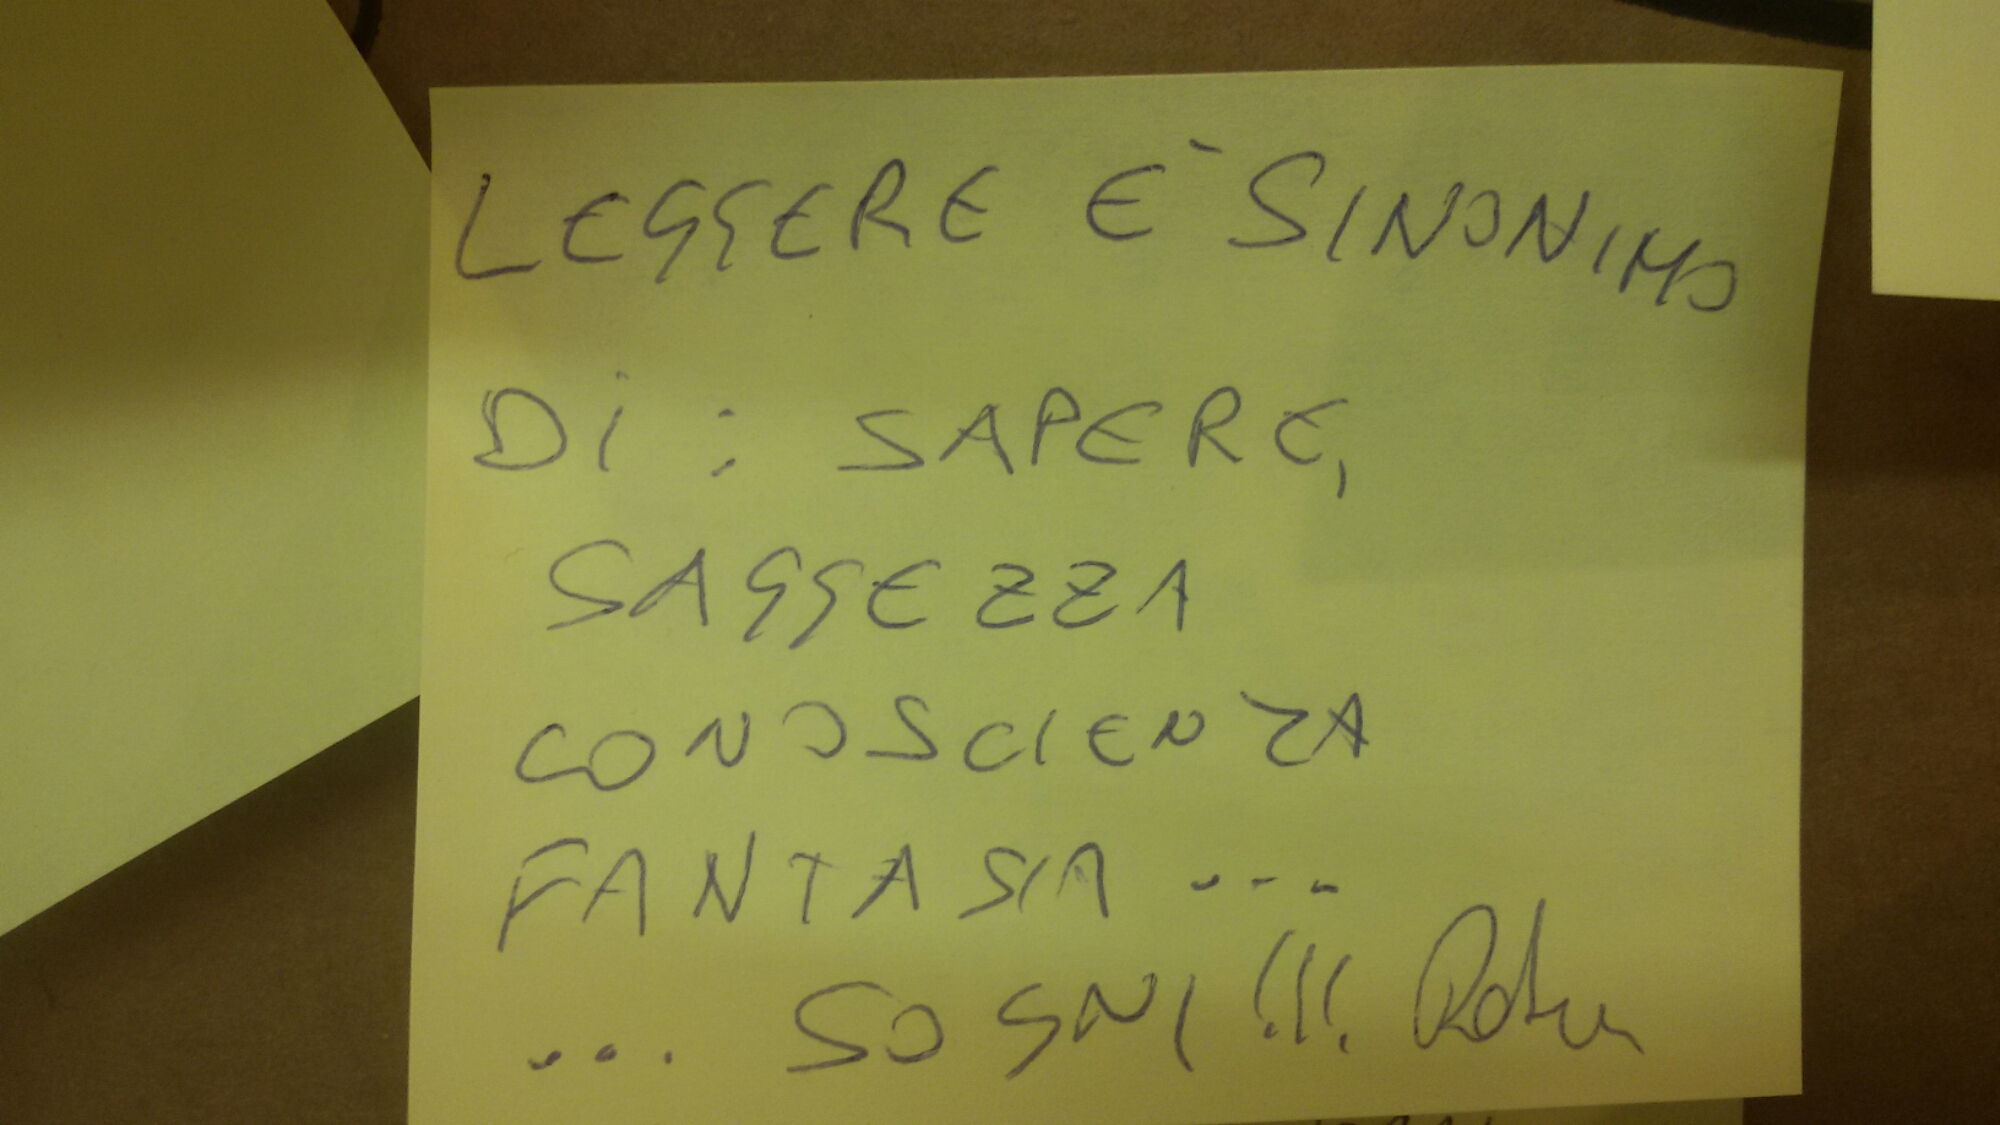 LEGGERE E` SINONIMO
Di : SAPERE,
SAGGEZZA
CONOSCIENZA
FANTASIA ...
... SOGNI !!!